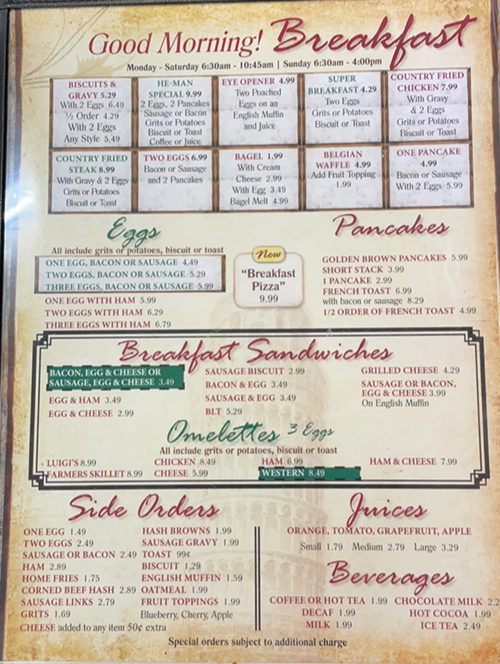 Good Morning! Breakfast
Monday - Saturday 6:30am - 10:45am | Sunday 6:30am - 4:00pm
BISCUITS &
GRAVY 5.29
With 2 Eggs 6.49
½ Order 4.29
With 2 Eggs
Any Style 5.49
HE-MAN
SPECIAL 9.99
2 Eggs, 2 Pancakes
Sausage or Bacon
Grits or Potatoes
Biscuit or Toast
Coffee or Juice
EYE OPENER 4.99
Two Poached
Eggs on an
English Muffin
and Juice
SUPER
BREAKFAST 4.29
Two Eggs
Grits or Potatoes
Biscuit or Toast
COUNTRY FRIED
CHICKEN 7.99
With Gravy
& 2 Eggs
Grits or Potatoes
Biscuit or Toast
COUNTRY FRIED
STEAK 8.99
With Gravy & 2 Eggs
Grits or Potatoes
Biscuit or Toast
TWO EGGS 6.99
Bacon or Sausage
and 2 Pancakes
BAGEL 1.99
With Cream
Cheese 2.99
With Egg 3.49
Bagel Melt 4.99
BELGIAN
WAFFLE 4.99
Add Fruit Topping
1.99
ONE PANCAKE
4.99
Bacon or Sausage
With 2 Eggs 5.99
Eggs
All include grits or potatoes, biscuit or toast
ONE EGG, BACON OR SAUSAGE 4.49
TWO EGGS, BACON OR SAUSAGE 5.29
THREE EGGS, BACON OR SAUSAGE 5.99
ONE EGG WITH HAM 5.99
TWO EGGS WITH HAM 6.29
THREE EGGS WITH HAM 6.79
New
"Breakfast
Pizza"
9.99
Pancakes
GOLDEN BROWN PANCAKES 5.99
SHORT STACK 3.99
1 PANCAKE 2.99
FRENCH TOAST 6.99
with bacon or sausage 8.29
1/2 ORDER OF FRENCH TOAST 4.99
Breakfast Sandwiches
BACON, EGG & CHEESE OR
SAUSAGE, EGG & CHEESE 3.49
EGG & HAM 3.49
EGG & CHEESE 2.99
SAUSAGE BISCUIT 2.99
BACON & EGG 3.49
SAUSAGE & EGG 3.49
BLT 5.29
GRILLED CHEESE 4.29
SAUSAGE OR BACON,
EGG & CHEESE 3.99
On English Muffin
Omelettes 3 Eggs
All include grits or potatoes, biscuit or toast
LUIGI'S 8.99
FARMERS SKILLET 8.99
CHICKEN 8.49
CHEESE 5.99
HAM 6.99
WESTERN 8.49
HAM & CHEESE 7.99
Side Orders
ONE EGG 1.49
TWO EGGS 2.49
SAUSAGE OR BACON 2.49
HAM 2.89
HOME FRIES 1.75
CORNED BEEF HASH 2.89
SAUSAGE LINKS 2.79
GRITS 1.69
CHEESE added to any item 50¢ extra
HASH BROWNS 1.99
SAUSAGE GRAVY 1.99
TOAST 99¢
BISCUIT 1.29
ENGLISH MUFFIN 1.59
OATMEAL 1.99
FRUIT TOPPINGS 1.99
Blueberry, Cherry, Apple
Juices
ORANGE, TOMATO, GRAPEFRUIT, APPLE
Small 1.79 Medium 2.79 Large 3.29
Beverages
COFFEE OR HOT TEA 1.99
DECAF 1.99
MILK 1.99
CHOCOLATE MILK 2.2
HOT COCOA 1.99
ICE TEA 2.49
Special orders subject to additional charge